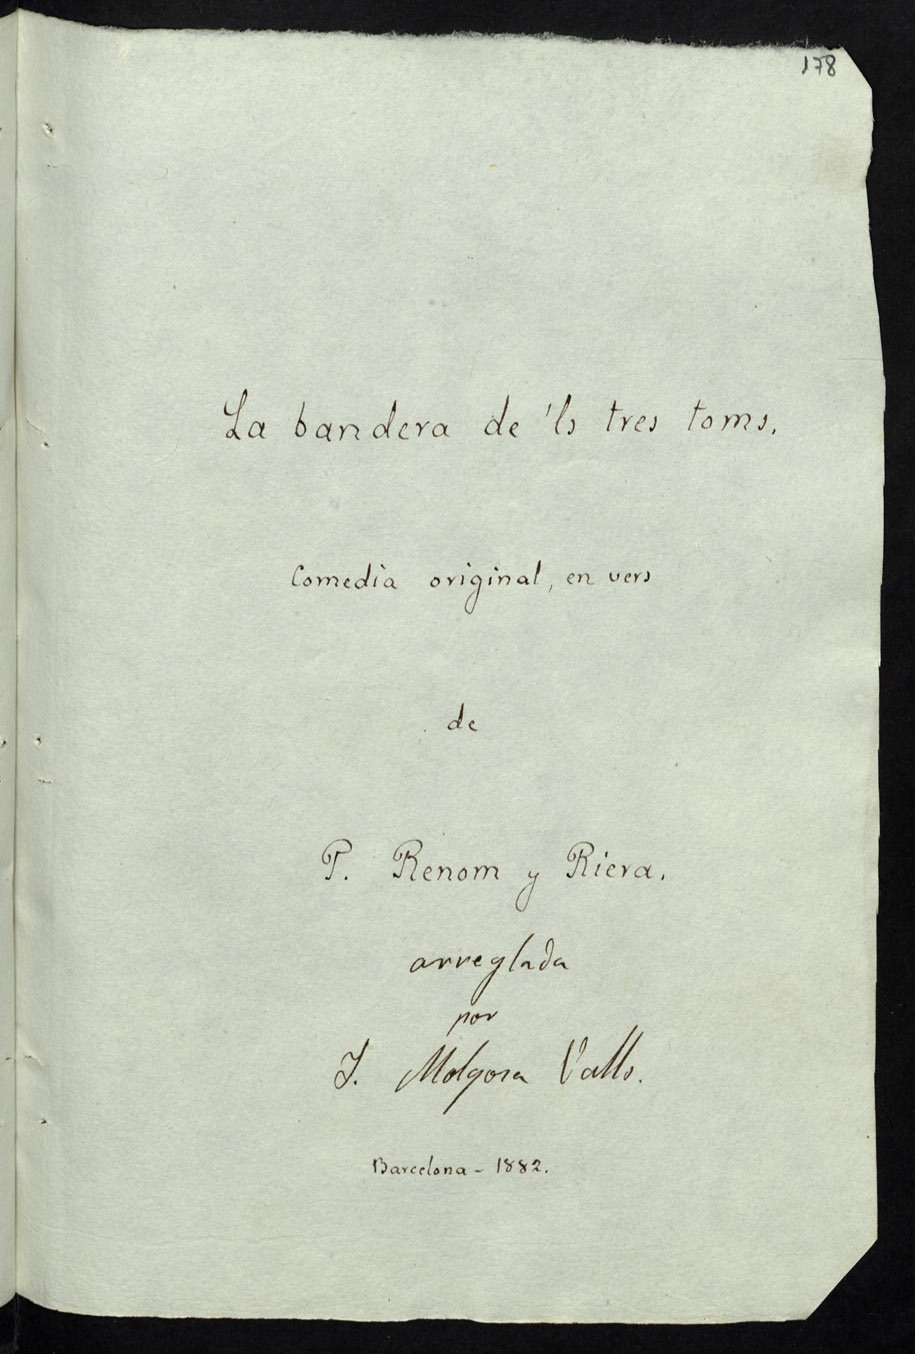 178
La bandera de 'ls tres toms.
Comedia original, en vers
de
P. Renom y Riera.
arreglada
por
J. Molgosa Valls.
Barcelona - 1882.